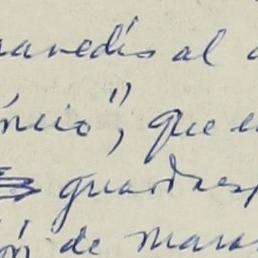 ravedís al
ncio", que e
guardaesp
ón de mara